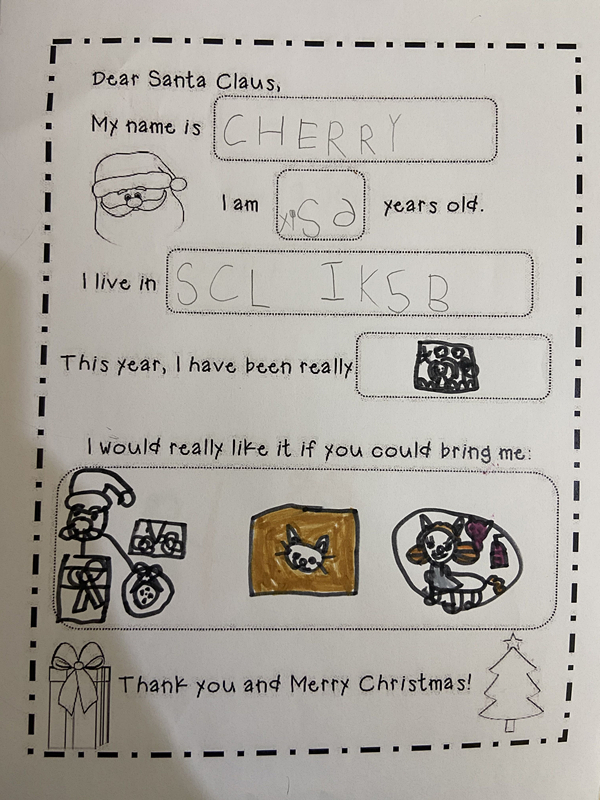 Dear Santa Claus,
My name is CHERRY
I am years old.
I live in SCL IK5B
This year, I have been really
I would really like it if you could bring me:
Thank you and Merry Christmas!